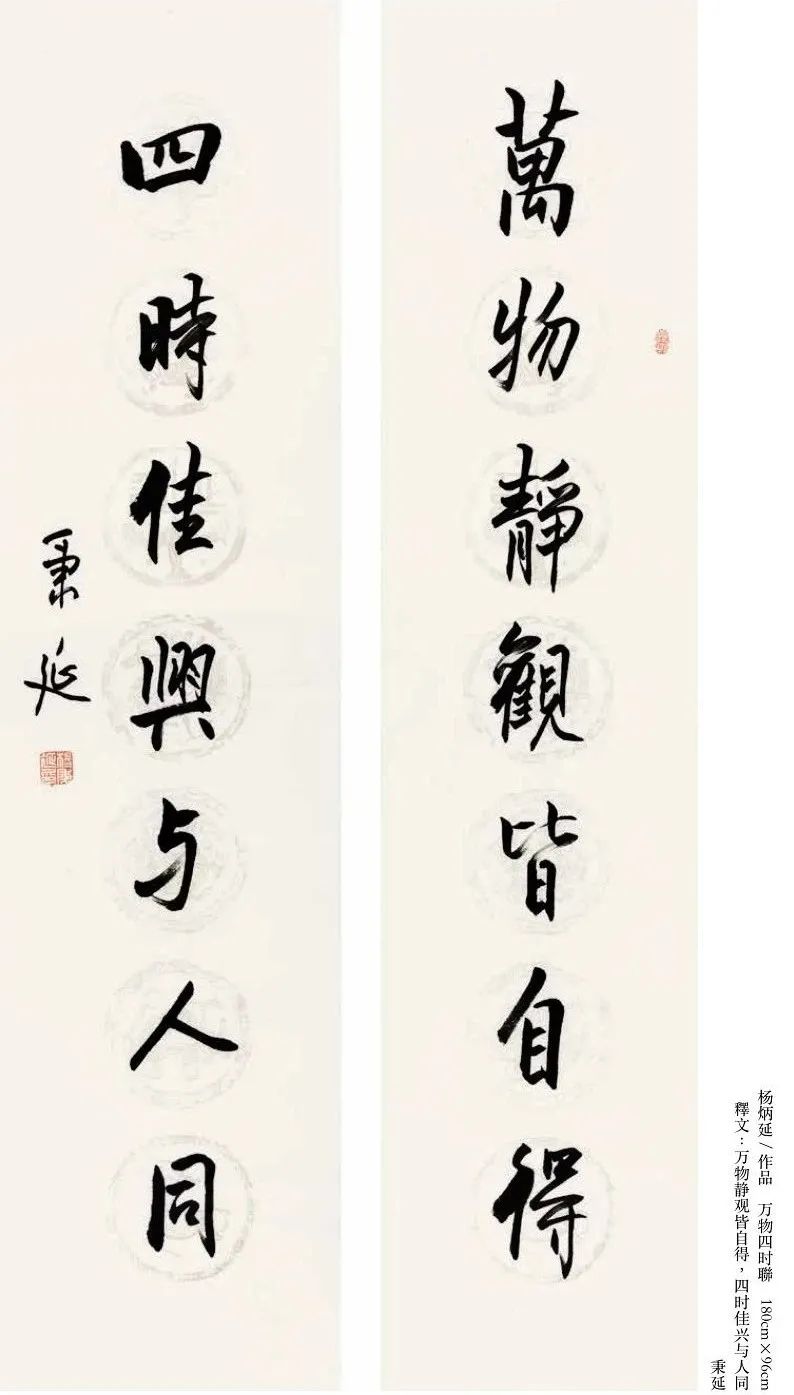 萬物靜觀皆自得
四時佳興与人同
秉延
杨炳延/作品 万物四时聯 180cm×96cm
釋文:万物静观皆自得,四时佳兴与人同
秉延